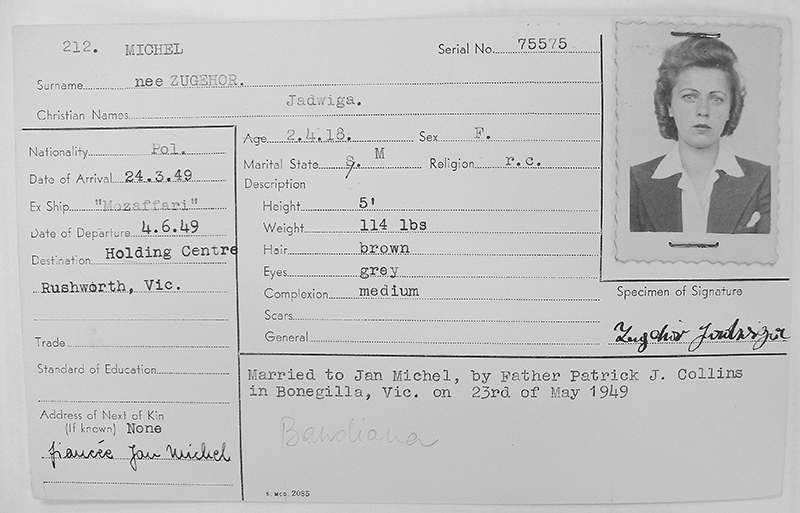 212. MICHEL
Serial No. 75575
Surname nee ZUGEHOR.
Christian Names Jadwiga.
Nationality Pol.
Date of Arrival 24.3.49
Ex Ship "Mozaffari"
Date of Departure 4.6.49
Destination Holding Centre
Rushworth, Vic.
Trade
Standard of Education
Address of Next of Kin
(If known) None
fiancée Jan Michel
Age 2.4.18. Sex F.
Marital State S. M Religion r.c.
Description
Height 5'
Weight 114 lbs
Hair brown
Eyes grey
Complexion medium
Scars
General
Specimen of Signature
Zugehör Jadwiga
Married to Jan Michel, by Father Patrick J. Collins
in Bonegilla, Vic. on 23rd of May 1949
Bandiana
S. MCD. 2085